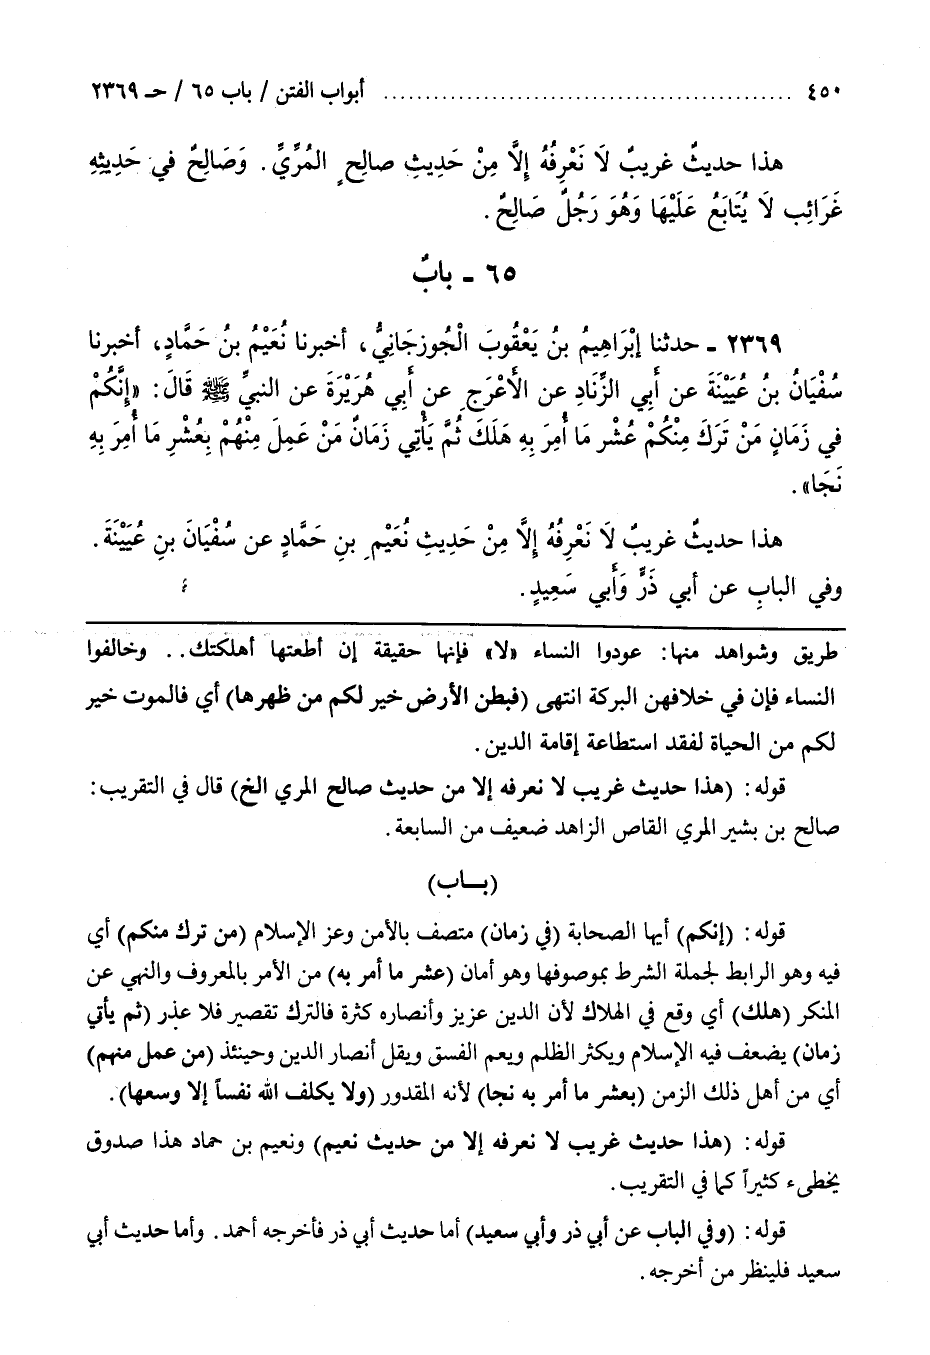 ٤٥٠ ................................................ أبواب الفتن / باب ٦٥ / حـ ٢٣٦٩
هذا حديثٌ غريبٌ لَا نَعْرِفُهُ إِلَّا مِنْ حَدِيثِ صالِحٍ المُرِّيِّ. وَصَالِحٌ في حَدِيثِهِ
غَرَائِب لَا يُتَابَعُ عَلَيْهَا وَهُوَ رَجُلٌ صَالِحٌ.
٦٥ ـ بابٌ
٢٣٦٩ ـ حدثنا إبْرَاهِيمُ بنُ يَعْقُوبَ الْجُوزجَانِيُّ، أخبرنا نُعَيْمُ بنُ حَمَّادٍ، أخبرنا
سُفْيَانُ بنُ عُيَيْنَةَ عن أبي الزِّنَادِ عن الأَعْرَجِ عن أبي هُرَيْرَةَ عن النبيِّ ﷺ قَالَ: «إنَّكُمْ
في زَمَانٍ مَنْ تَرَكَ مِنْكُمْ عُشْر مَا أُمِرَ بِهِ هَلَكَ ثُمَّ يَأْتِي زَمَانٌ مَنْ عَمِلَ مِنْهُمْ بِعُشْرِ مَا أُمِرَ بِهِ
نَجَا».
هذا حديثٌ غريبٌ لَا نَعْرِفُهُ إِلَّا مِنْ حَدِيثِ نُعَيْمِ بنِ حَمَّادٍ عن سُفْيَانَ بنِ عُيَيْنَةَ.
وفي البابِ عن أبي ذَرٍّ وَأَبي سَعِيدٍ.
طريق وشواهد منها: عودوا النساء «لا» فإنها حقيقة إن أطعتها أهلكتك.. وخالفوا
النساء فإن في خلافهن البركة انتهى (فبطن الأرض خير لكم من ظهرها) أي فالموت خير
لكم من الحياة لفقد استطاعة إقامة الدين.
قوله: (هذا حديث غريب لا نعرفه إلا من حديث صالح المري الخ) قال في التقريب:
صالح بن بشير المري القاص الزاهد ضعيف من السابعة.
(بـاب)
قوله: (إنكم) أيها الصحابة (في زمان) متصف بالأمن وعز الإسلام (من ترك منكم) أي
فيه وهو الرابط لجملة الشرط بموصوفها وهو أمان (عشر ما أمر به) من الأمر بالمعروف والنهي عن
المنكر (هلك) أي وقع في الهلاك لأن الدين عزيز وأنصاره كثرة فالترك تقصير فلا عذر (ثم يأتي
زمان) يضعف فيه الإسلام ويكثر الظلم ويعم الفسق ويقل أنصار الدين وحينئذ (من عمل منهم)
أي من أهل ذلك الزمن (بعشر ما أمر به نجا) لأنه المقدور (ولا يكلف الله نفساً إلا وسعها).
قوله: (هذا حديث غريب لا نعرفه إلا من حديث نعيم) ونعيم بن حماد هذا صدوق
يخطىء كثيراً كما في التقريب.
قوله: (وفي الباب عن أبي ذر وأبي سعيد) أما حديث أبي ذر فأخرجه أحمد. وأما حديث أبي
سعيد فلينظر من أخرجه.